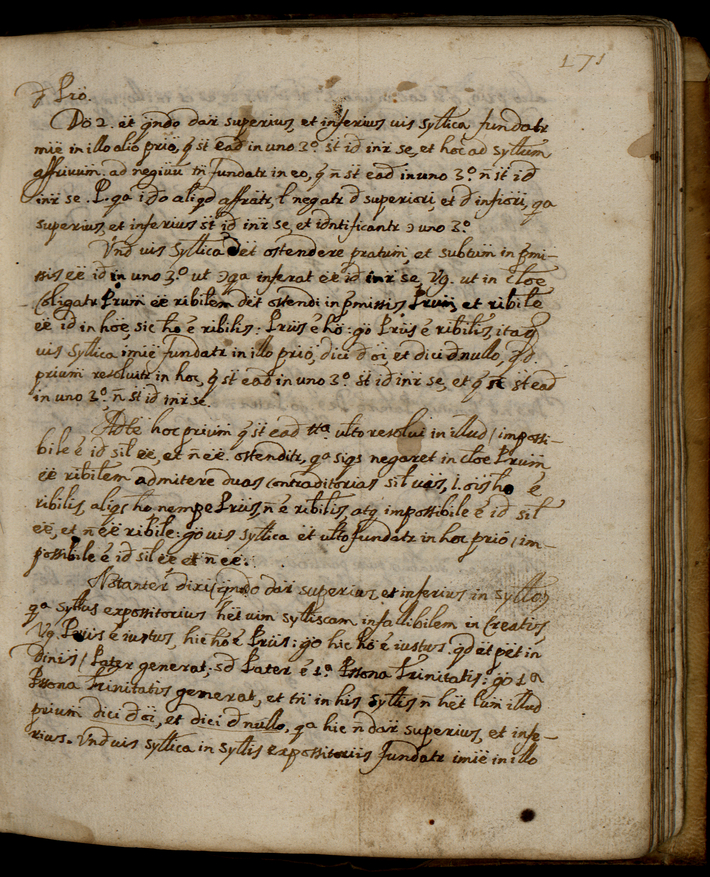 171
Do 2. et qndo datr superius, et inferius uis syllca fundatr
mie in illo alio prio, q st ead in uno 3.º st id intr se, et hoc ad syllum
affrivum. ad negium tn fundatr in eo, q n st ead in uno 3.º n st id
intr se. P. qa ido aliqd affratr, l negatr d superiori, et d infiori, qa
superius, et inferius st id intr se, et idntificantr uno 3.º
Und uis syllca det ostendere pratum, et subtum in pmi-
ssis ee id in uno 3.º ut qa inferat ee id intr se, Vg. ut in cloe
Coligatr Prum ee ribilem det ostendi in pmissis Prum, et ribile
ee id in hoe, sic ho e ribilis: Prus e ho: go Prus e ribilis, itaq
uis syllica imie fundatr in illo prio, dici d oi, et dici d nullo, qd
prium resoluitr in hoc, q st ead in uno 3.º st id intr se, et q st ead
in uno 3.º n st id intr se.
Adte hoc prium q st ead tta. ulto resolui in illud / impossi-
bile e id sil ee, et n ee. ostenditr, qa siqs negaret in cloe Prum
ee ribilem admitere duas contraditorias sil uas, l. ois ho e
ribilis, aliqs ho nempe Prus, n e ribilis, atq impossibile e id sil
ee, et n ee ribile: go uis syllica et ulto fundatr in hoc prio / im-
possibile e id sil ee et n ee.
Notanter dixi / qndo datr superius, et inferius in syllo,
qa syllus expossitorius het uim sylliscam infallibilem in Creatis,
Vg. Prus e iustus, hic ho e Prus: go hic ho e iustus. qd et pet in
Diuis / Pater generat, sd Pater e 1.ª Pssona Trinitatis: go 1ª
Pssona Trinitatis generat, et tn in his syllis n het lum illud
prium dici d oi, et dici d nullo, qa hic n datr superius, et infe-
rius. Und uis syllica in syllis expossitoriis fundatr imie in illo